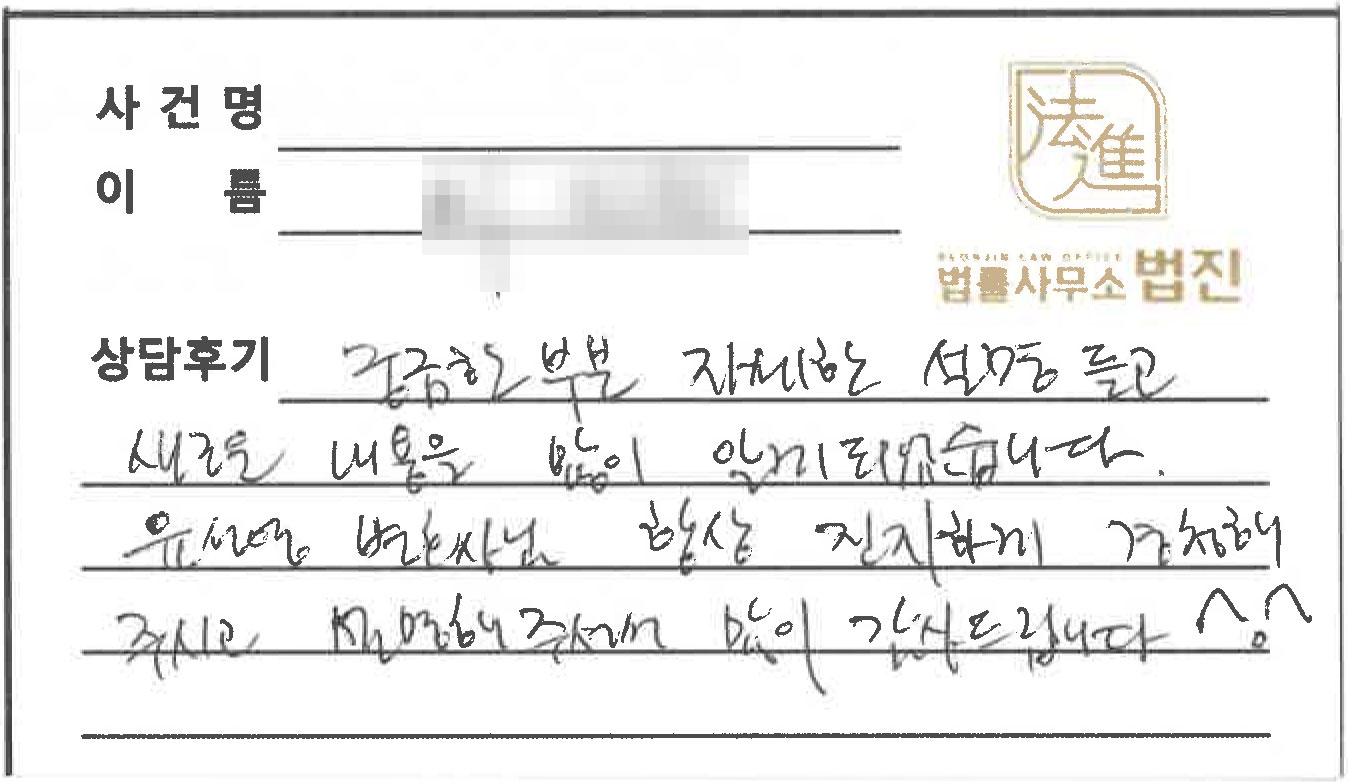 사건명
이름
法進
BEONJIN LAW OFFICE
법률사무소 법진
상담후기 궁금한 부분 자세한 설명 듣고
새로운 내용을 많이 알게 되었습니다.
변호사님 항상 진지하게 경청해
주시고 설명해 주셔서 많이 감사드립니다 ^o^